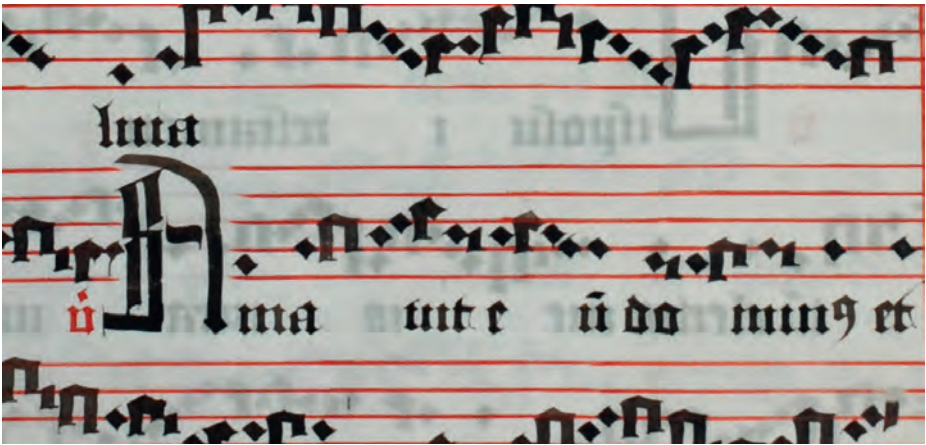 luia
v̇ Ama uit e ū do minꝰ et